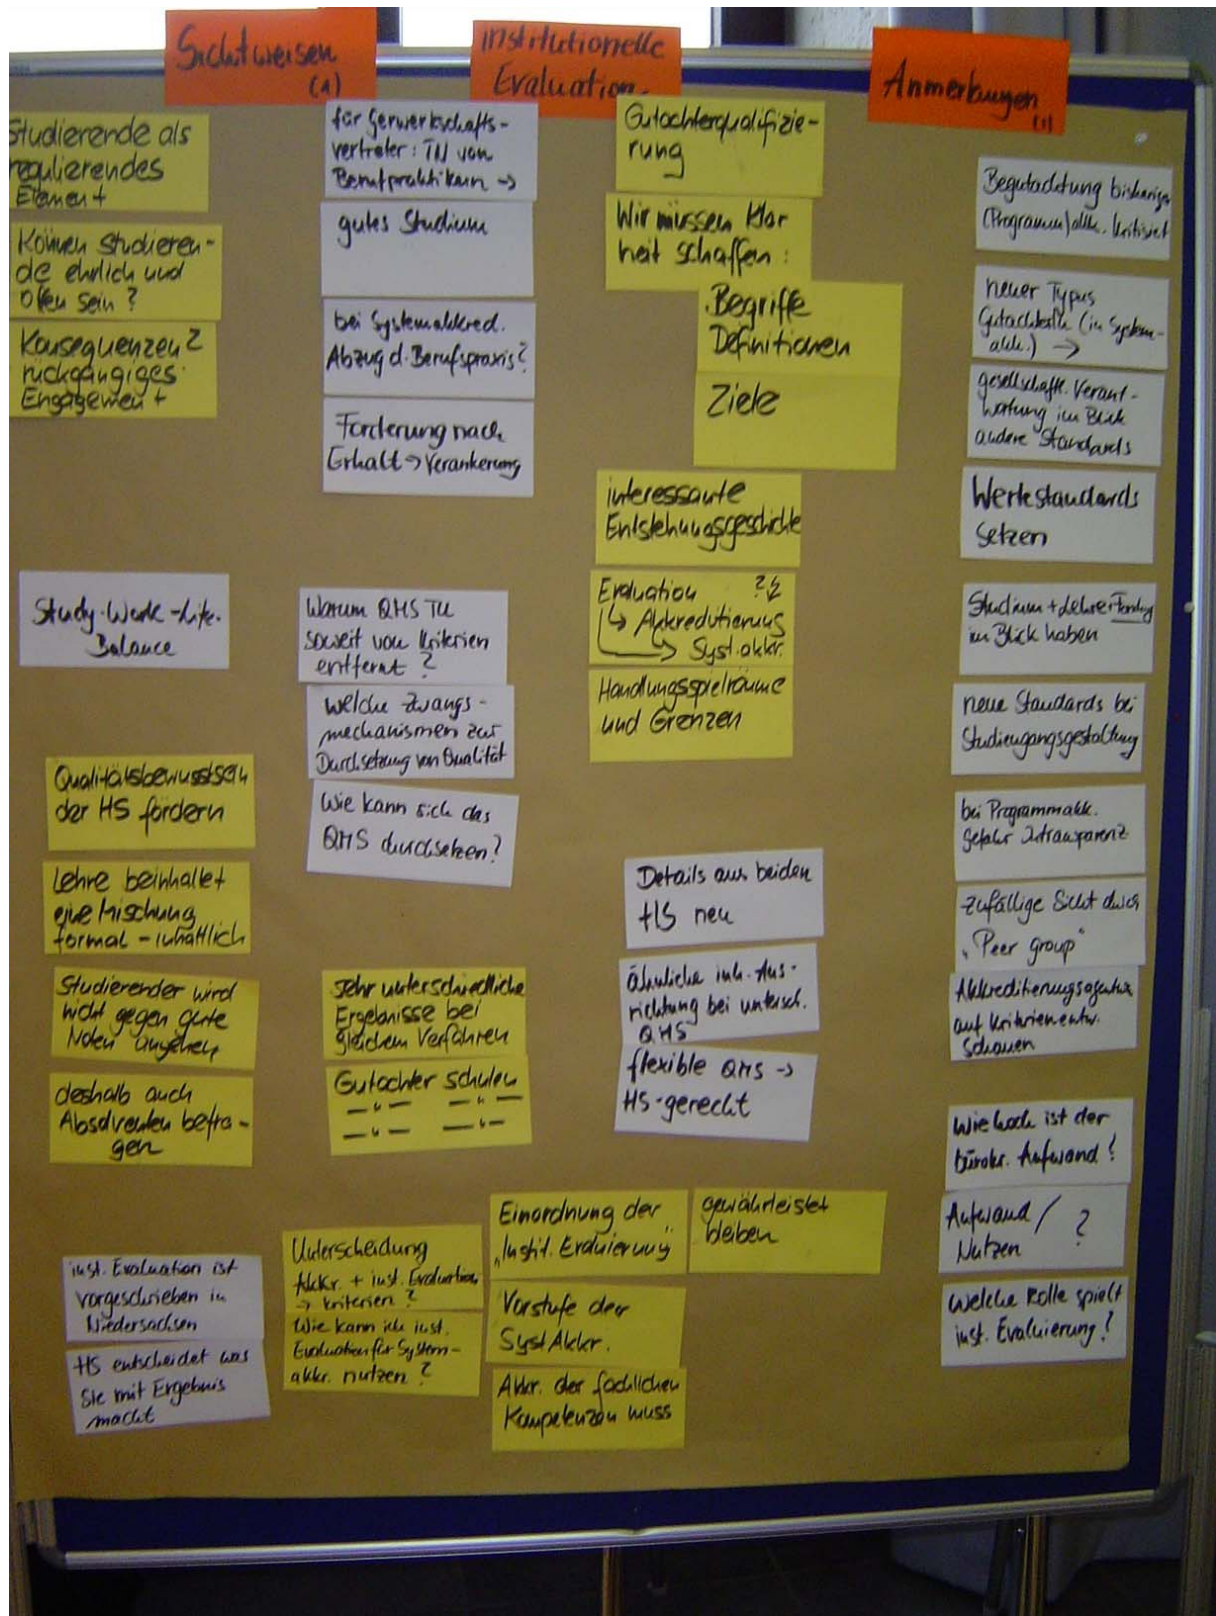 Sichtweisen
(1)
institutionelle
Evaluation
Anmerkungen
(1)
Studierende als
regulierendes
Element
Können Studieren-
de ehrlich und
offen sein?
Konsequenzen?
rückgängiges
Engagement
Study-Work-Life-
Balance
Qualitätsbewusstsein
der HS fördern
Lehre beinhaltet
eine Mischung
formal - inhaltlich
Studierender wird
nicht gegen gute
Noten angehen
deshalb auch
Absolventen befra-
gen
inst. Evaluation ist
vorgeschrieben in
Niedersachsen
HS entscheidet was
Sie mit Ergebnis
macht
für Gerwerkschafts-
vertreter: TN von
Berufpraktikern →
gutes Studium
bei Systemakkred.
Abzug d. Berufspraxis?
Forderung nach
Erhalt → Verankerung
Warum QMS TU
soweit von Kriterien
entfernt?
welche Zwangs-
mechanismen zur
Durchsetzung von Qualität
Wie kann sich das
QMS durchsetzen?
Sehr unterschiedliche
Ergebnisse bei
gleichem Verfahren
Gutachter schulen
— " — — " —
— " — — " —
Unterscheidung
Akkr. + inst. Evaluation
→ Kriterien?
Wie kann ich inst.
Evaluation für System-
akkr. nutzen?
Gutachterqualifizie-
rung
Wir müssen Klar
heit schaffen:
Begriffe
Definitionen
Ziele
interessante
Entstehungsgeschichte
Evaluation ?
↳ Akkreditierung
→ Syst.akkr.
Handlungsspielräume
und Grenzen
Details aus beiden
HS neu
ähnliche inh. Aus-
richtung bei untersch.
QMS
flexible QMS →
HS-gerecht
Einordnung der
„Instit. Evaluierung"
Vorstufe der
SystAkkr.
Akkr. der fachlichen
Kompetenzen muss
gewährleistet
bleiben
Begutachtung bisherige
(Programm)akk. kritisiert
neuer Typus
Gutachter (in System-
akk.) →
gesellschaftl. Verant-
wortung im Blick
andere Standards
Wertestandards
setzen
Studium + Lehre + Forschung
im Blick haben
neue Standards bei
Studiengangsgestaltung
bei Programmakk.
Gefahr Intransparenz
zufällige Sicht durch
„Peer group"
Akkreditierungsagentur
auf Kriterienentw.
schauen
Wie hoch ist der
bürokr. Aufwand?
Aufwand / ?
Nutzen
Welche Rolle spielt
inst. Evaluierung?